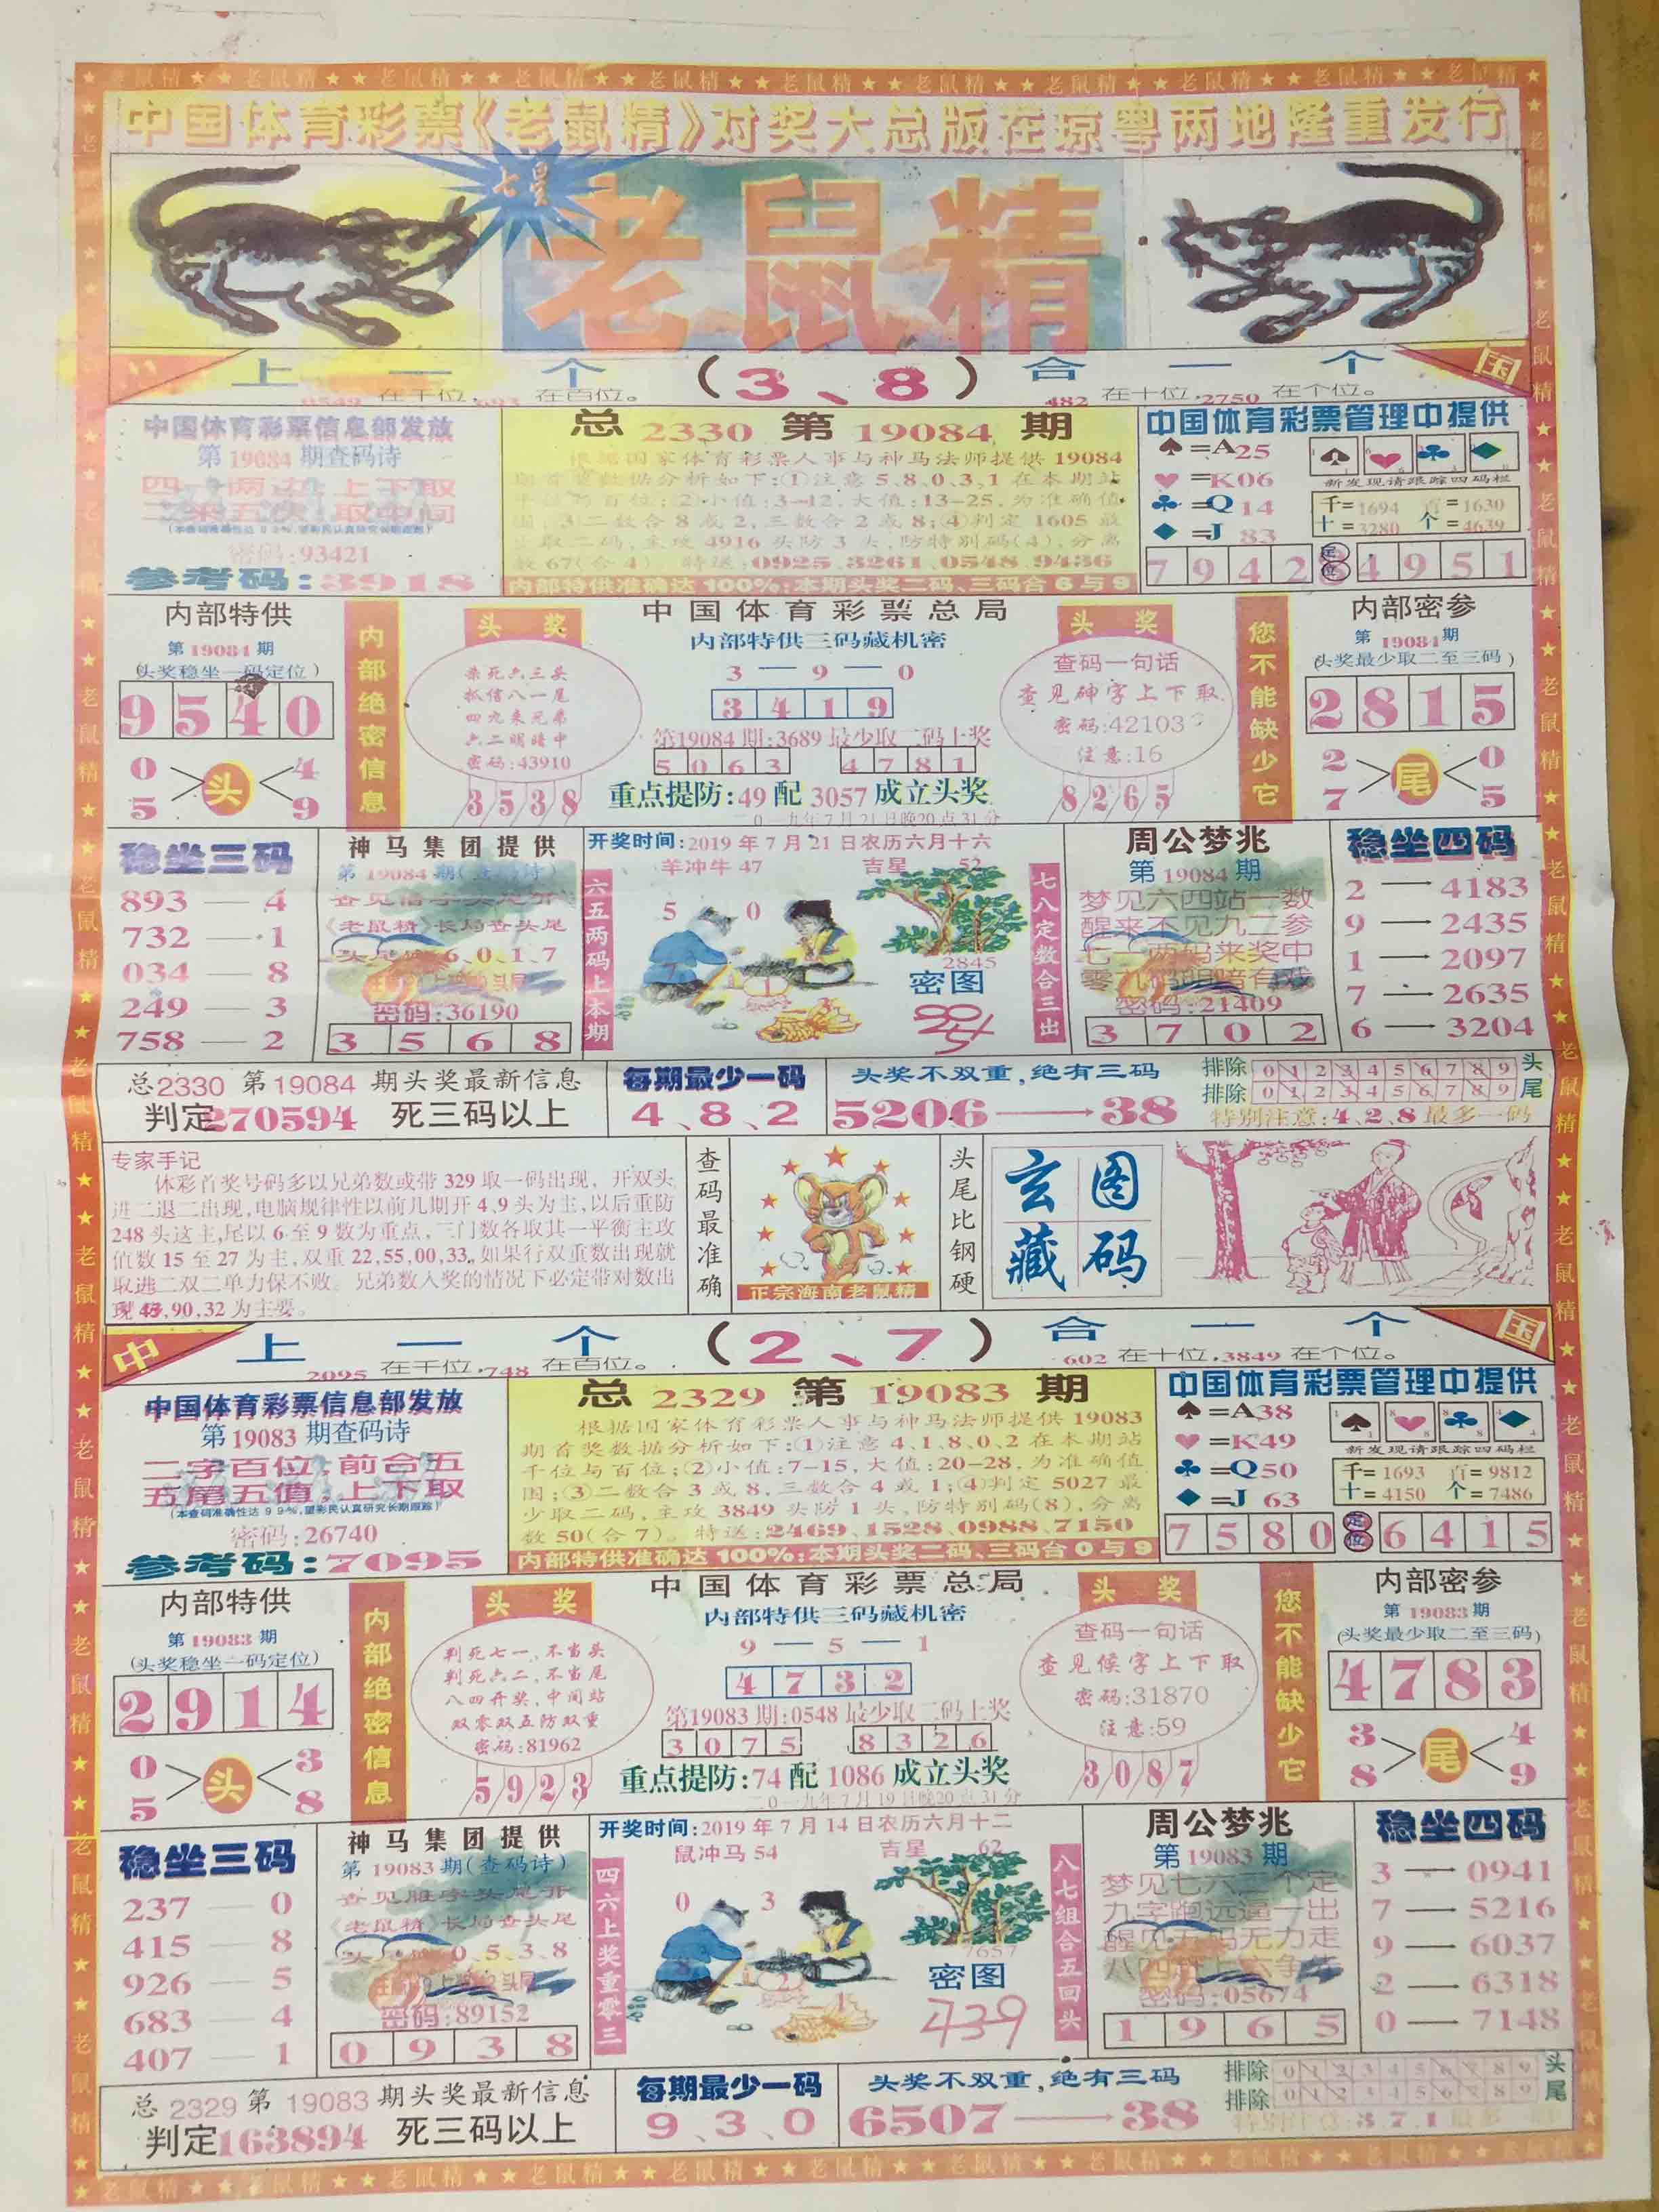 中国体育彩票《老鼠精》对奖大总版在琼粤两地隆重发行
七星
老鼠精
上一个(3、8)合一个
8549 在千位,693 在百位。
482 在十位,2750 在个位。
国
中国体育彩票信息部发放
第19084期查码诗
上下取
取中间
(本查码准确性达99%,望彩民认真研究长期跟踪)
密码:93421
参考码:3918
总2330第19084期
根据国家体育彩票人事与神马法师提供19084
期首奖数据分析如下:(1)注意5、8、0、3、1在本期站
千位与百位;(2)小值:3-12,大值:13-25,为准确值
围;(3)二数合8或2,三数合2或8;(4)判定1605最
少取二码,主攻4916头防3头,防特别码(4),分离
数67(合4)。特送:0925、3261、0548、9436
内部特供准确达100%:本期头奖二码、三码合6与9
中国体育彩票管理中提供
♠=A25
♥=K06
♣=Q14
♦=J 83
新发现请跟踪四码栏
千=1694 百=1630
十=3280 个=4639
7942 定位 4951
内部特供
第19084期
(头奖稳坐一码定位)
9540
0 4
头
5 9
内部绝密信息
头奖
杀死六三头
抓信八一尾
四九来兄弟
六二明暗中
密码:43910
3538
中国体育彩票总局
内部特供三码藏机密
3—9—0
3419
第19084期:3689最少取二码上奖
5063 4781
重点提防:49配3057成立头奖
二0一九年7月21日晚20点31分
头奖
查码一句话
查见砷字上下取
密码:42103
注意:16
8265
您不能缺少它
内部密参
第19084期
(头奖最少取二至三码)
2815
2 0
尾
7 5
稳坐三码
893—4
732—1
034—8
249—3
758—2
神马集团提供
第19084期(查码诗)
查见信字头尾开
《老鼠精》长局查头尾
6、0、1、7
密码:36190
3568
开奖时间:2019年7月21日农历六月十六
羊冲牛47 吉星52
六五两码上本期
5 0
7
1
3
2845
密图
七八定数合三出
周公梦兆
第19084期
梦见六四站一数
醒来不见九二参
七一两码来奖中
零九码明暗有戏
密码:21409
3702
稳坐四码
2→4183
9→2435
1→2097
7→2635
6→3204
总2330第19084期头奖最新信息
判定270594死三码以上
每期最少一码
4、8、2
头奖不双重,绝有三码
5206→38
排除0123456789头
排除0123456789尾
特别注意:4、2、8最多一码
专家手记
体彩首奖号码多以兄弟数或带329取一码出现,开双头
进二退二出现,电脑规律性以前几期开4、9头为主,以后重防
248头这主,尾以6至9数为重点,三门数各取其一平衡主攻
值数15至27为主,双重22,55,00,33,如果行双重数出现就
取进二双二单力保不败。兄弟数入奖的情况下必定带对数出
现,90,32为主要。
查码最准确
正宗海南老鼠精
头尾比钢硬
玄图
藏码
中
上一个(2、7)合一个
2095 在千位,748 在百位。
602 在十位,3849 在个位。
国
中国体育彩票信息部发放
第19083期查码诗
二字百位,前合五
五尾五值,上下取
(本查码准确性达99%,望彩民认真研究长期跟踪)
密码:26740
参考码:7095
总2329第19083期
根据国家体育彩票人事与神马法师提供19083
期首奖数据分析如下:(1)注意4、1、8、0、2在本期站
千位与百位;(2)小值:7-15,大值:20-28,为准确值
围;(3)二数合3或8,三数合4或1;(4)判定5027最
少取二码,主攻3849头防1头,防特别码(8),分离
数50(合7)。特送:2469、1528、0988、7150
内部特供准确达100%:本期头奖二码、三码合0与9
中国体育彩票管理中提供
♠=A38
♥=K49
♣=Q50
♦=J 63
新发现请跟踪四码栏
千=1693 百=9812
十=4150 个=7486
7580 定位 6415
内部特供
第19083期
(头奖稳坐一码定位)
2914
0 3
头
5 8
内部绝密信息
头奖
判死七一,不当头
判死六二,不当尾
八四开奖,中间站
双零双五防双重
密码:81962
5923
中国体育彩票总局
内部特供三码藏机密
9—5—1
4732
第19083期:0548最少取二码上奖
3075 8326
重点提防:74配1086成立头奖
二0一九年7月19日晚20点31分
头奖
查码一句话
查见候字上下取
密码:31870
注意:59
3087
您不能缺少它
内部密参
第19083期
(头奖最少取二至三码)
4783
3 4
尾
8 9
稳坐三码
237—0
415—8
926—5
683—4
407—1
神马集团提供
第19083期(查码诗)
《老鼠精》长局查头尾
0、5、3、8
密码:89152
0938
开奖时间:2019年7月14日农历六月十二
鼠冲马54 吉星62
四六上奖重零三
0 3
8
2
1
7657
密图
439
八七组合五回头
周公梦兆
第19083期
梦见七六二个定
九字跑远逼一出
醒见五码无力走
密码:05674
1965
稳坐四码
3—0941
7—5216
9—6037
2—6318
0—7148
总2329第19083期头奖最新信息
判定163894死三码以上
每期最少一码
9、3、0
头奖不双重,绝有三码
6507→38
排除0123456789头
排除0123456789尾
3、7、1